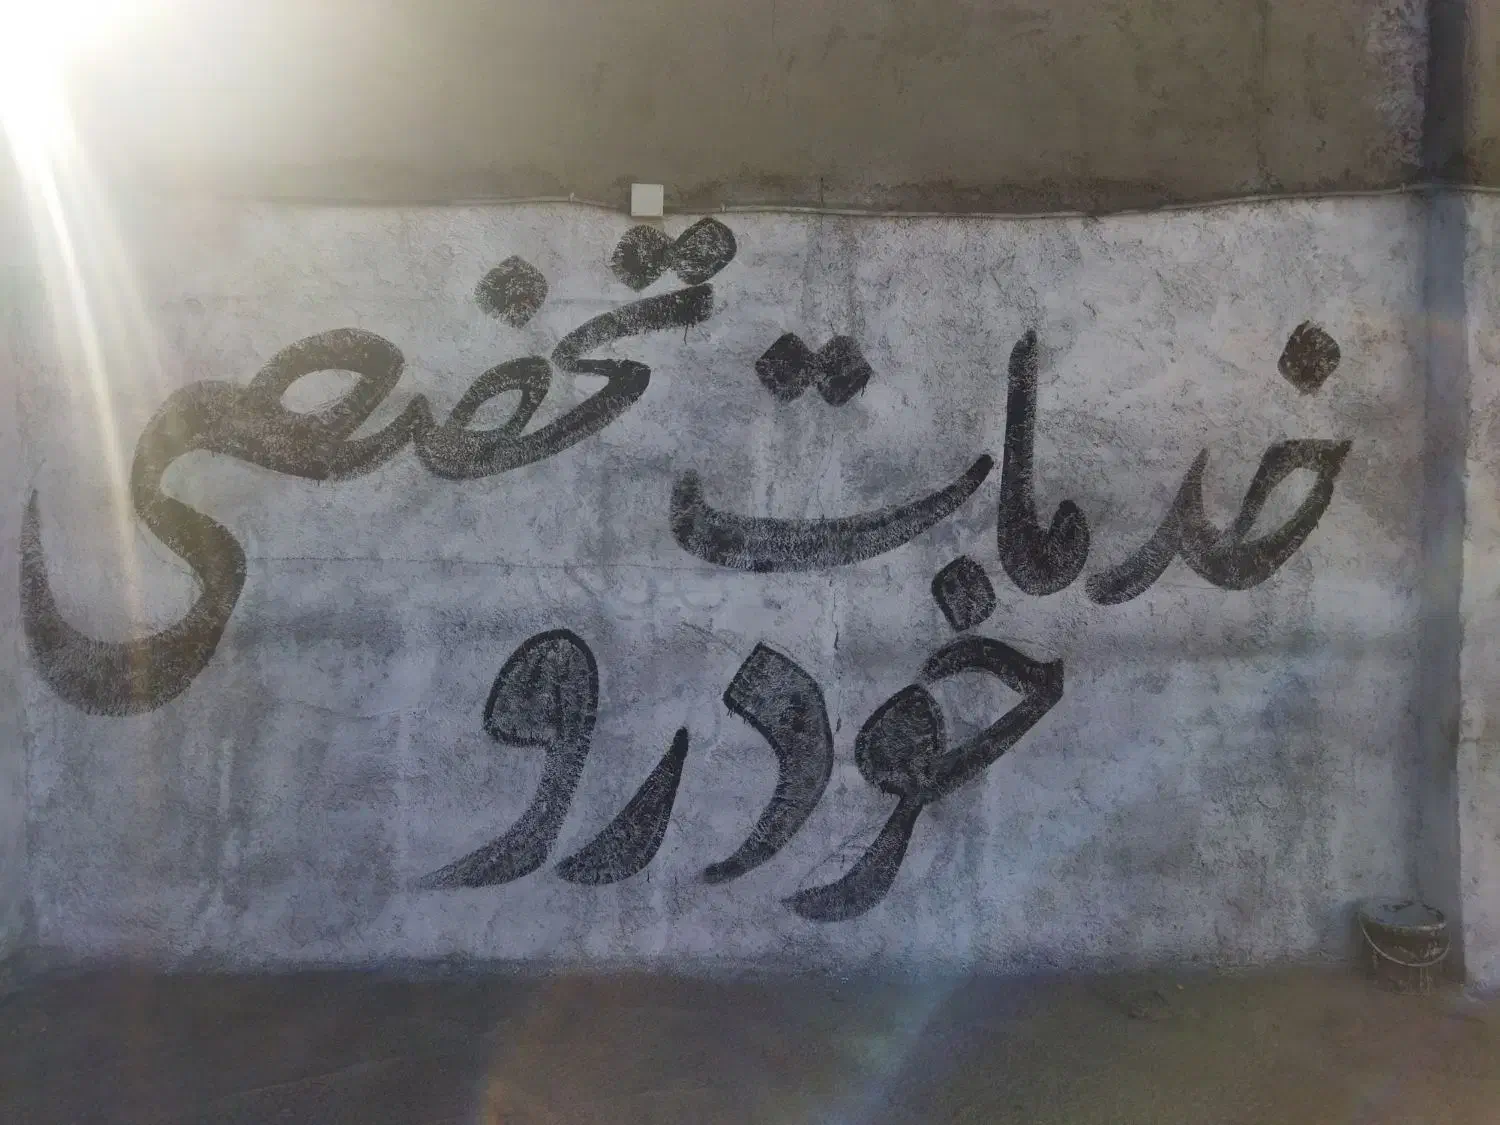 خدمات تخصصی
خودرو